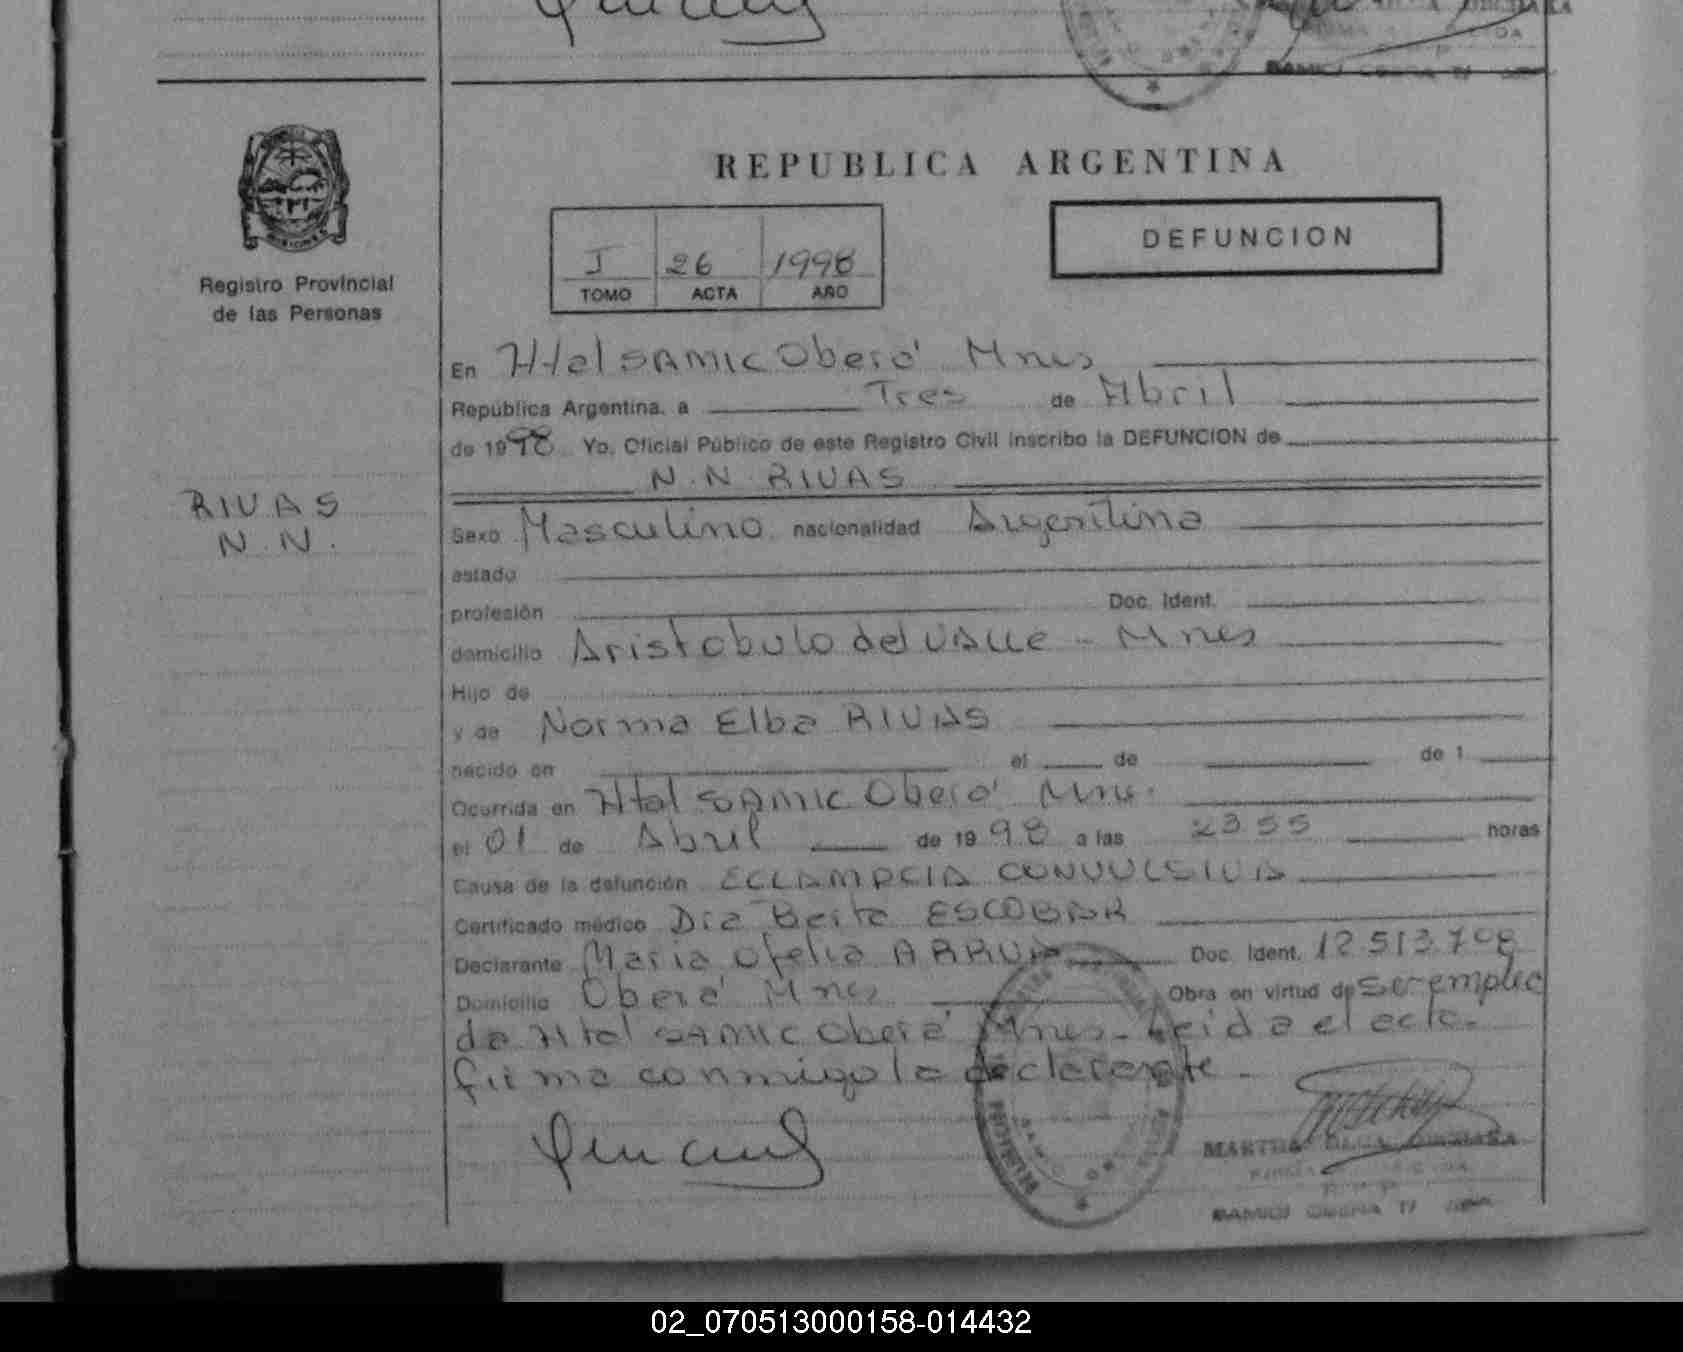 REPUBLICA ARGENTINA
DEFUNCION
I 26 1998
TOMO ACTA AÑO
Registro Provincial
de las Personas
RIVAS
N.N.
En Htal SAMIC Oberá Mnes
República Argentina, a Tres de Abril
de 1998 Yo, Oficial Público de este Registro Civil inscribo la DEFUNCION de
N.N RIVAS
Sexo Masculino nacionalidad Argentina
estado
profesión Doc. Ident.
domicilio Aristobulo del Valle - Mnes
Hijo de
y de Norma Elba RIVAS
nacido en el de de 1
Ocurrida en Htal SAMIC Oberá Mnes.
el 01 de Abril de 1998 a las 23 55 horas
Causa de la defunción ECLAMPCIA CONVULSIVA
Certificado médico Dra Berta ESCOBAR
Declarante Maria Ofelia ARRUA Doc. Ident. 12 513 708
Domicilio Oberá Mnes Obra en virtud de ser emplea
da Htal SAMIC Oberá Mnes. Leida el acta.
firma conmigo la declarante.
MARTHA OLGA
02_070513000158-014432